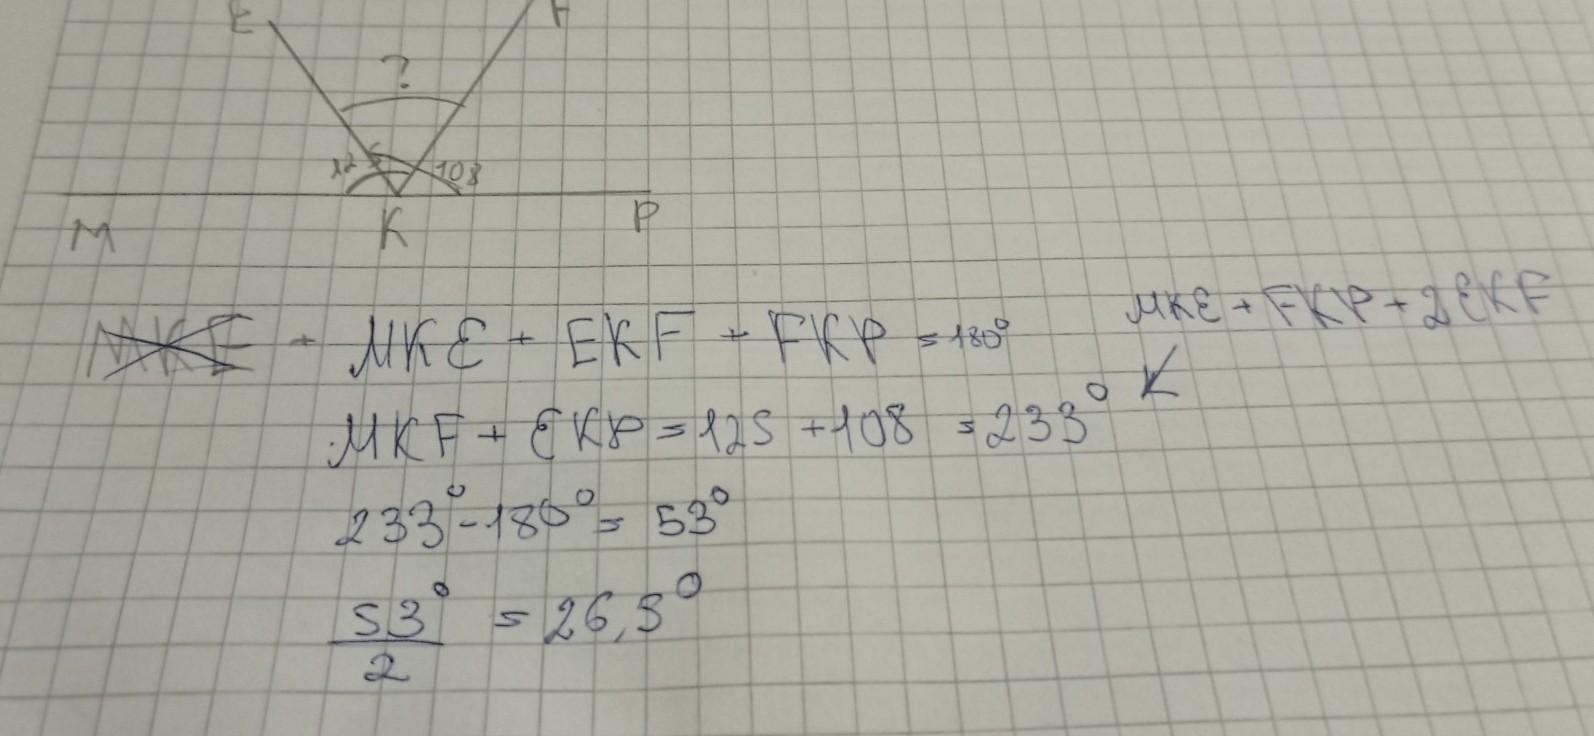 E F
?
125 108
M K P
MKE + MKE + EKF + FKP = 180°
MKE + FKP + 2EKF
MKF + EKP = 125 + 108 = 233°
233° - 180° = 53°
53° / 2 = 26,5°